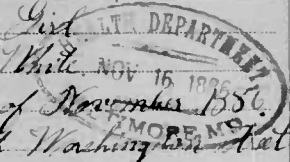 Girl
White
of November 1886
Washington
HEALTH DEPARTMENT
NOV 16 1886
BALTIMORE, MD.